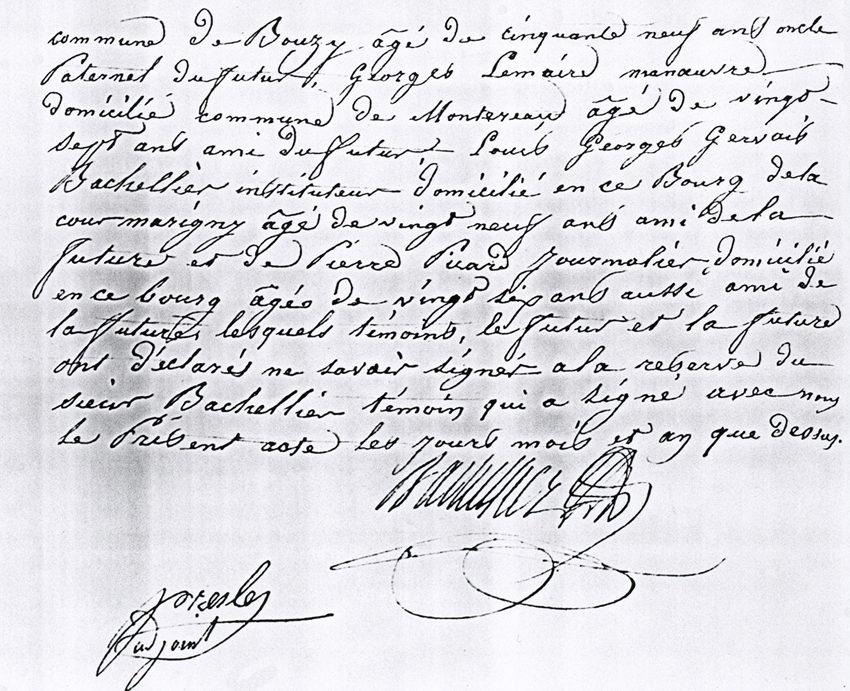 commune de Bouzy âgé de cinquante neuf ans oncle
Paternel du futur, Georges Lemaire manœuvre
domicilié commune de Montereau âgé de vingt
sept ans ami du futur Louis Georges Gervais
Bachellier instituteur domicilié en ce Bourg de la
cour marigny âgé de vingt neuf ans ami de la
future et de Pierre Picard journalier domicilié
en ce bourg âgés de vingt six ans aussi ami de
la future, lesquels témoins, le futur et la future
ont déclarés ne savoir signer a la reserve du
sieur Bachellier témoin qui a signé avec nous
le Présent acte les jours mois et an que dessus.
adjoint